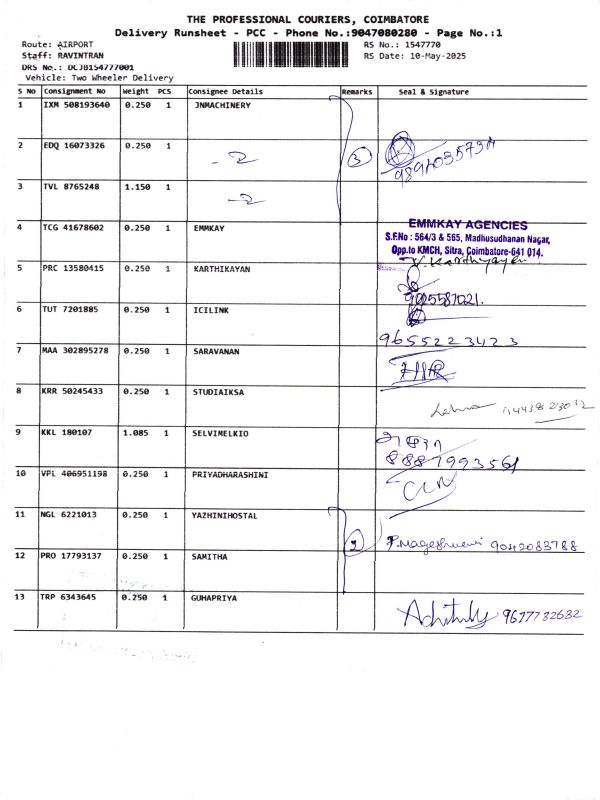 THE PROFESSIONAL COURIERS, COIMBATORE
Delivery Runsheet - PCC - Phone No.:9047080280 - Page No.:1
Route: AIRPORT
RS No.: 1547770
Staff: RAVINTRAN
RS Date: 10-May-2025
DRS No.: DCJB154777001
Vehicle: Two Wheeler Delivery
S No Consignment No Weight PCS Consignee Details Remarks Seal & Signature
1 IXM 508193640 0.250 1 JNMACHINERY
2 EDQ 16073326 0.250 1 3
3 TVL 8765248 1.150 1
4 TCG 41678602 0.250 1 EMMKAY
EMMKAY AGENCIES
S.F.No : 564/3 & 565, Madhusudhanan Nagar,
Opp.to KMCH, Sitra, Coimbatore-641 014.
5 PRC 13580415 0.250 1 KARTHIKAYAN
6 TUT 7201885 0.250 1 ICILINK
9655223423
7 MAA 302895278 0.250 1 SARAVANAN
8 KRR 50245433 0.250 1 STUDIAIKSA
9 KKL 180107 1.085 1 SELVIMELKIO
10 VPL 406951198 0.250 1 PRIYADHARASHINI
11 NGL 6221013 0.250 1 YAZHINIHOSTAL
P.Mageshwari 9042083788
12 PRO 17793137 0.250 1 SAMITHA
13 TRP 6343645 0.250 1 GUHAPRIYA
9677732632